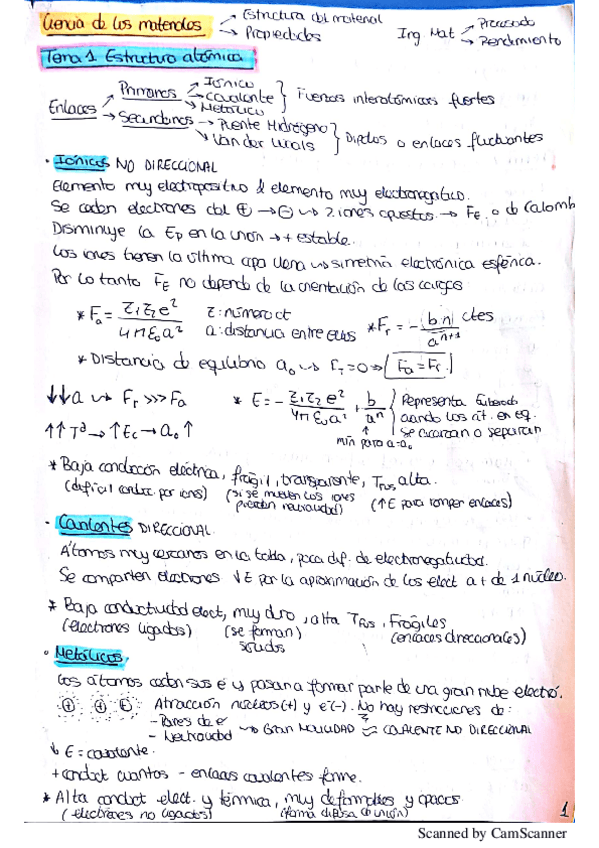 Ciencia de los materiales → Estructura del material
→ Propiedades
Ing Mat → Procesado
→ Rendimiento
Tema 1 Estructura atómica
Enlaces → Primarios → Iónico
→ Covalente
→ Metálico } Fuerzas interatómicas fuertes
→ Secundarios → Puente Hidrógeno
→ Van der Waals } Dipolos o enlaces fluctuantes
· Iónicos NO DIRECCIONAL
Elemento muy electropositivo & elemento muy electronegativo.
Se ceden electrones del ⊕ → ⊖ ↝ 2 iones opuestos → FE o de Coulomb
Disminuye la Ep en la unión → + estable.
Los iones tienen la última capa llena ↝ simetría electrónica esférica.
Por lo tanto FE no depende de la orientación de las cargas
* Fa = Z1Z2e² / 4πε0a² Z: número ct a: distancia entre ellos * Fr = - |b·n| / a^(n+1) ctes
* Distancia de equilibrio a0 ↝ FT = 0 ⇒ Fa = Fr.
↓↓a ↝ Fr >>> Fa
* E = - Z1Z2e² / 4πε0a + b / a^n Representa
cuando los át. en eq.
se acercan o separan
↑↑Tª → ↑Ec → a0↑
min para a=a0
* Baja conducción eléctrica, frágil, transparente, Tfus alta.
(difícil conduc por iones) (si se mueven los iones pierden neutralidad) (↑E para romper enlaces)
· Covalentes DIRECCIONAL.
Átomos muy cercanos en la tabla, poca dif. de electronegatividad.
Se comparten electrones ↓E por la aproximación de los elect a + de 1 núcleo.
* Baja conductividad elect, muy duro, alta Tfus, Frágiles
(electrones ligados) (se forman sólidos) (enlaces direccionales)
· Metálicos.
Los átomos ceden sus e⁻ y pasan a formar parte de una gran nube electró.
Atracción núcleos (+) y e⁻(-). No hay restricciones de:
- Pares de e⁻
- Neutralidad ↝ Gran MOVILIDAD ≈ COVALENTE NO DIRECCIONAL
↓ E = covalente.
+ conduct cuantos - enlaces covalentes forme.
* Alta conduct elect. y térmica, muy deformables y opacos
(electrones no ligados) (forma difusa de unión)
1
Scanned by CamScanner